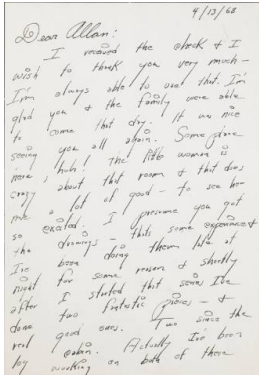 4/13/68
Dear Allan:
I received the check & I
wish to thank you very much —
I'm always able to use that. I'm
glad you & the family were able
to come that day. It was nice
seeing you all again. Some place
here, huh! The little woman is
crazy about that room & that does
me a lot of good — to see her
so excited. I presume you got
the drawings — thats some experience &
I've been doing them late at
night for some reason & shortly
after I started that series I've
done two fantastic pieces — &
real good ones. Two since the
log cabin. Actually I've been
working on both of these